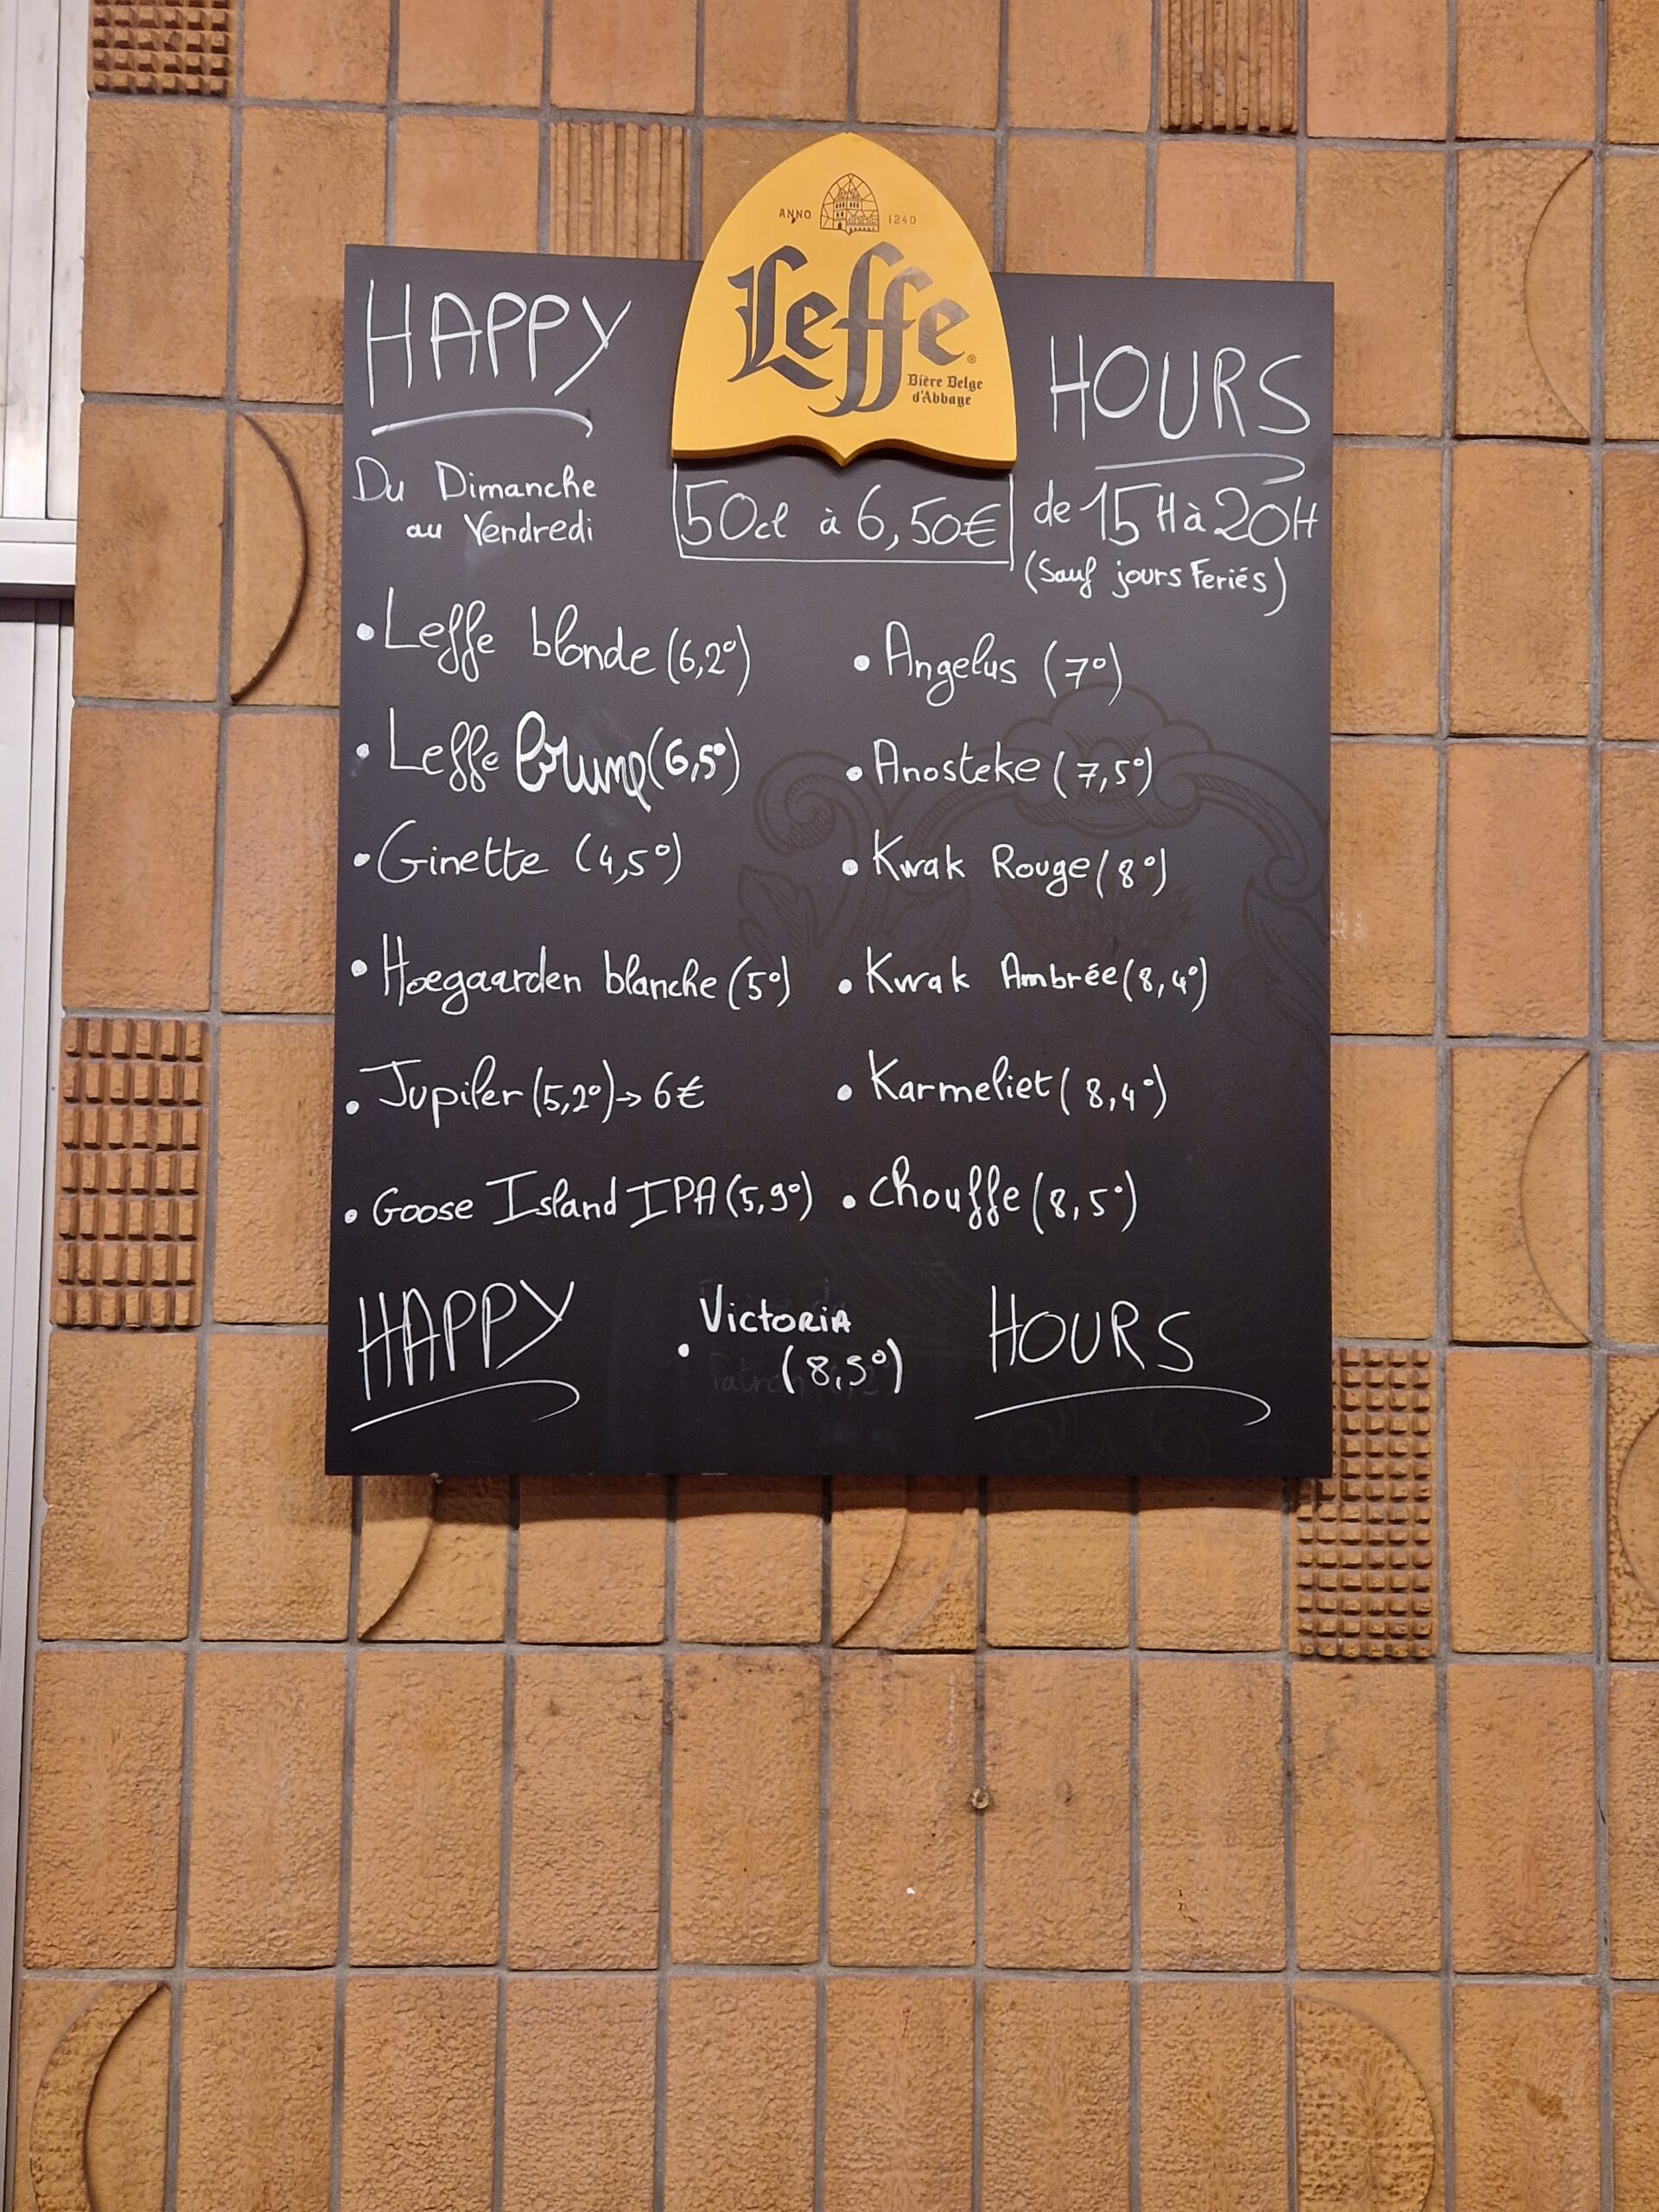 ANNO 1240
Leffe®
Bière Belge
d'Abbaye
HAPPY HOURS
Du Dimanche
au Vendredi
50cl à 6,50€
de 15H à 20H
(Sauf jours Feriés)
• Leffe blonde (6,2°)
• Leffe brune (6,5°)
• Ginette (4,5°)
• Hoegaarden blanche (5°)
• Jupiler (5,2°)→ 6€
• Goose Island IPA (5,9°)
• Angelus (7°)
• Anosteke (7,5°)
• Kwak Rouge (8°)
• Kwak Ambrée (8,4°)
• Karmeliet (8,4°)
• Chouffe (8,5°)
• VICTORIA
(8,5°)
HAPPY HOURS